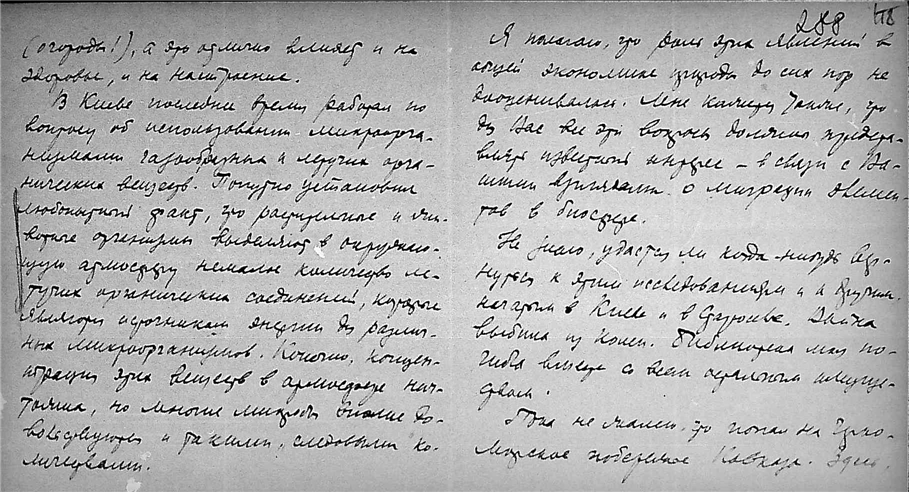 (огороды!), а это отлично влияет и на
здоровье, и на настроение.
В Киеве последнее время работал по
вопросу об использовании микроорга-
низмами газообразных и летучих орга-
нических веществ. Попутно установил
любопытный факт, что растительные и жи-
вотные организмы выделяют в окружаю-
щую атмосферу немалое количество ле-
тучих органических соединений, которые
являются источником энергии для различ-
ных микроорганизмов. Конечно, концен-
трация этих веществ в атмосфере нич-
тожна, но многие микробы вполне до-
вольствуются и такими, следовыми ко-
личествами.
288 418
Я полагаю, что роль этих явлений в
общей экономике природы до сих пор не
дооценивалась. Мне кажется также, что
для Вас все эти вопросы должны предста-
влять известный интерес – в связи с Ва-
шими взглядами о миграции элемен-
тов в биосфере.
Не знаю, удастся ли когда-нибудь вер-
нуться к этим исследованиям и к другим,
начатым в Киеве и в Война
выбила из колеи. Библиотека моя по-
гибла вместе со всем остальным имуще-
ством.
Пока не жалею, что попал на Черно-
морское побережье Кавказа. Здесь,